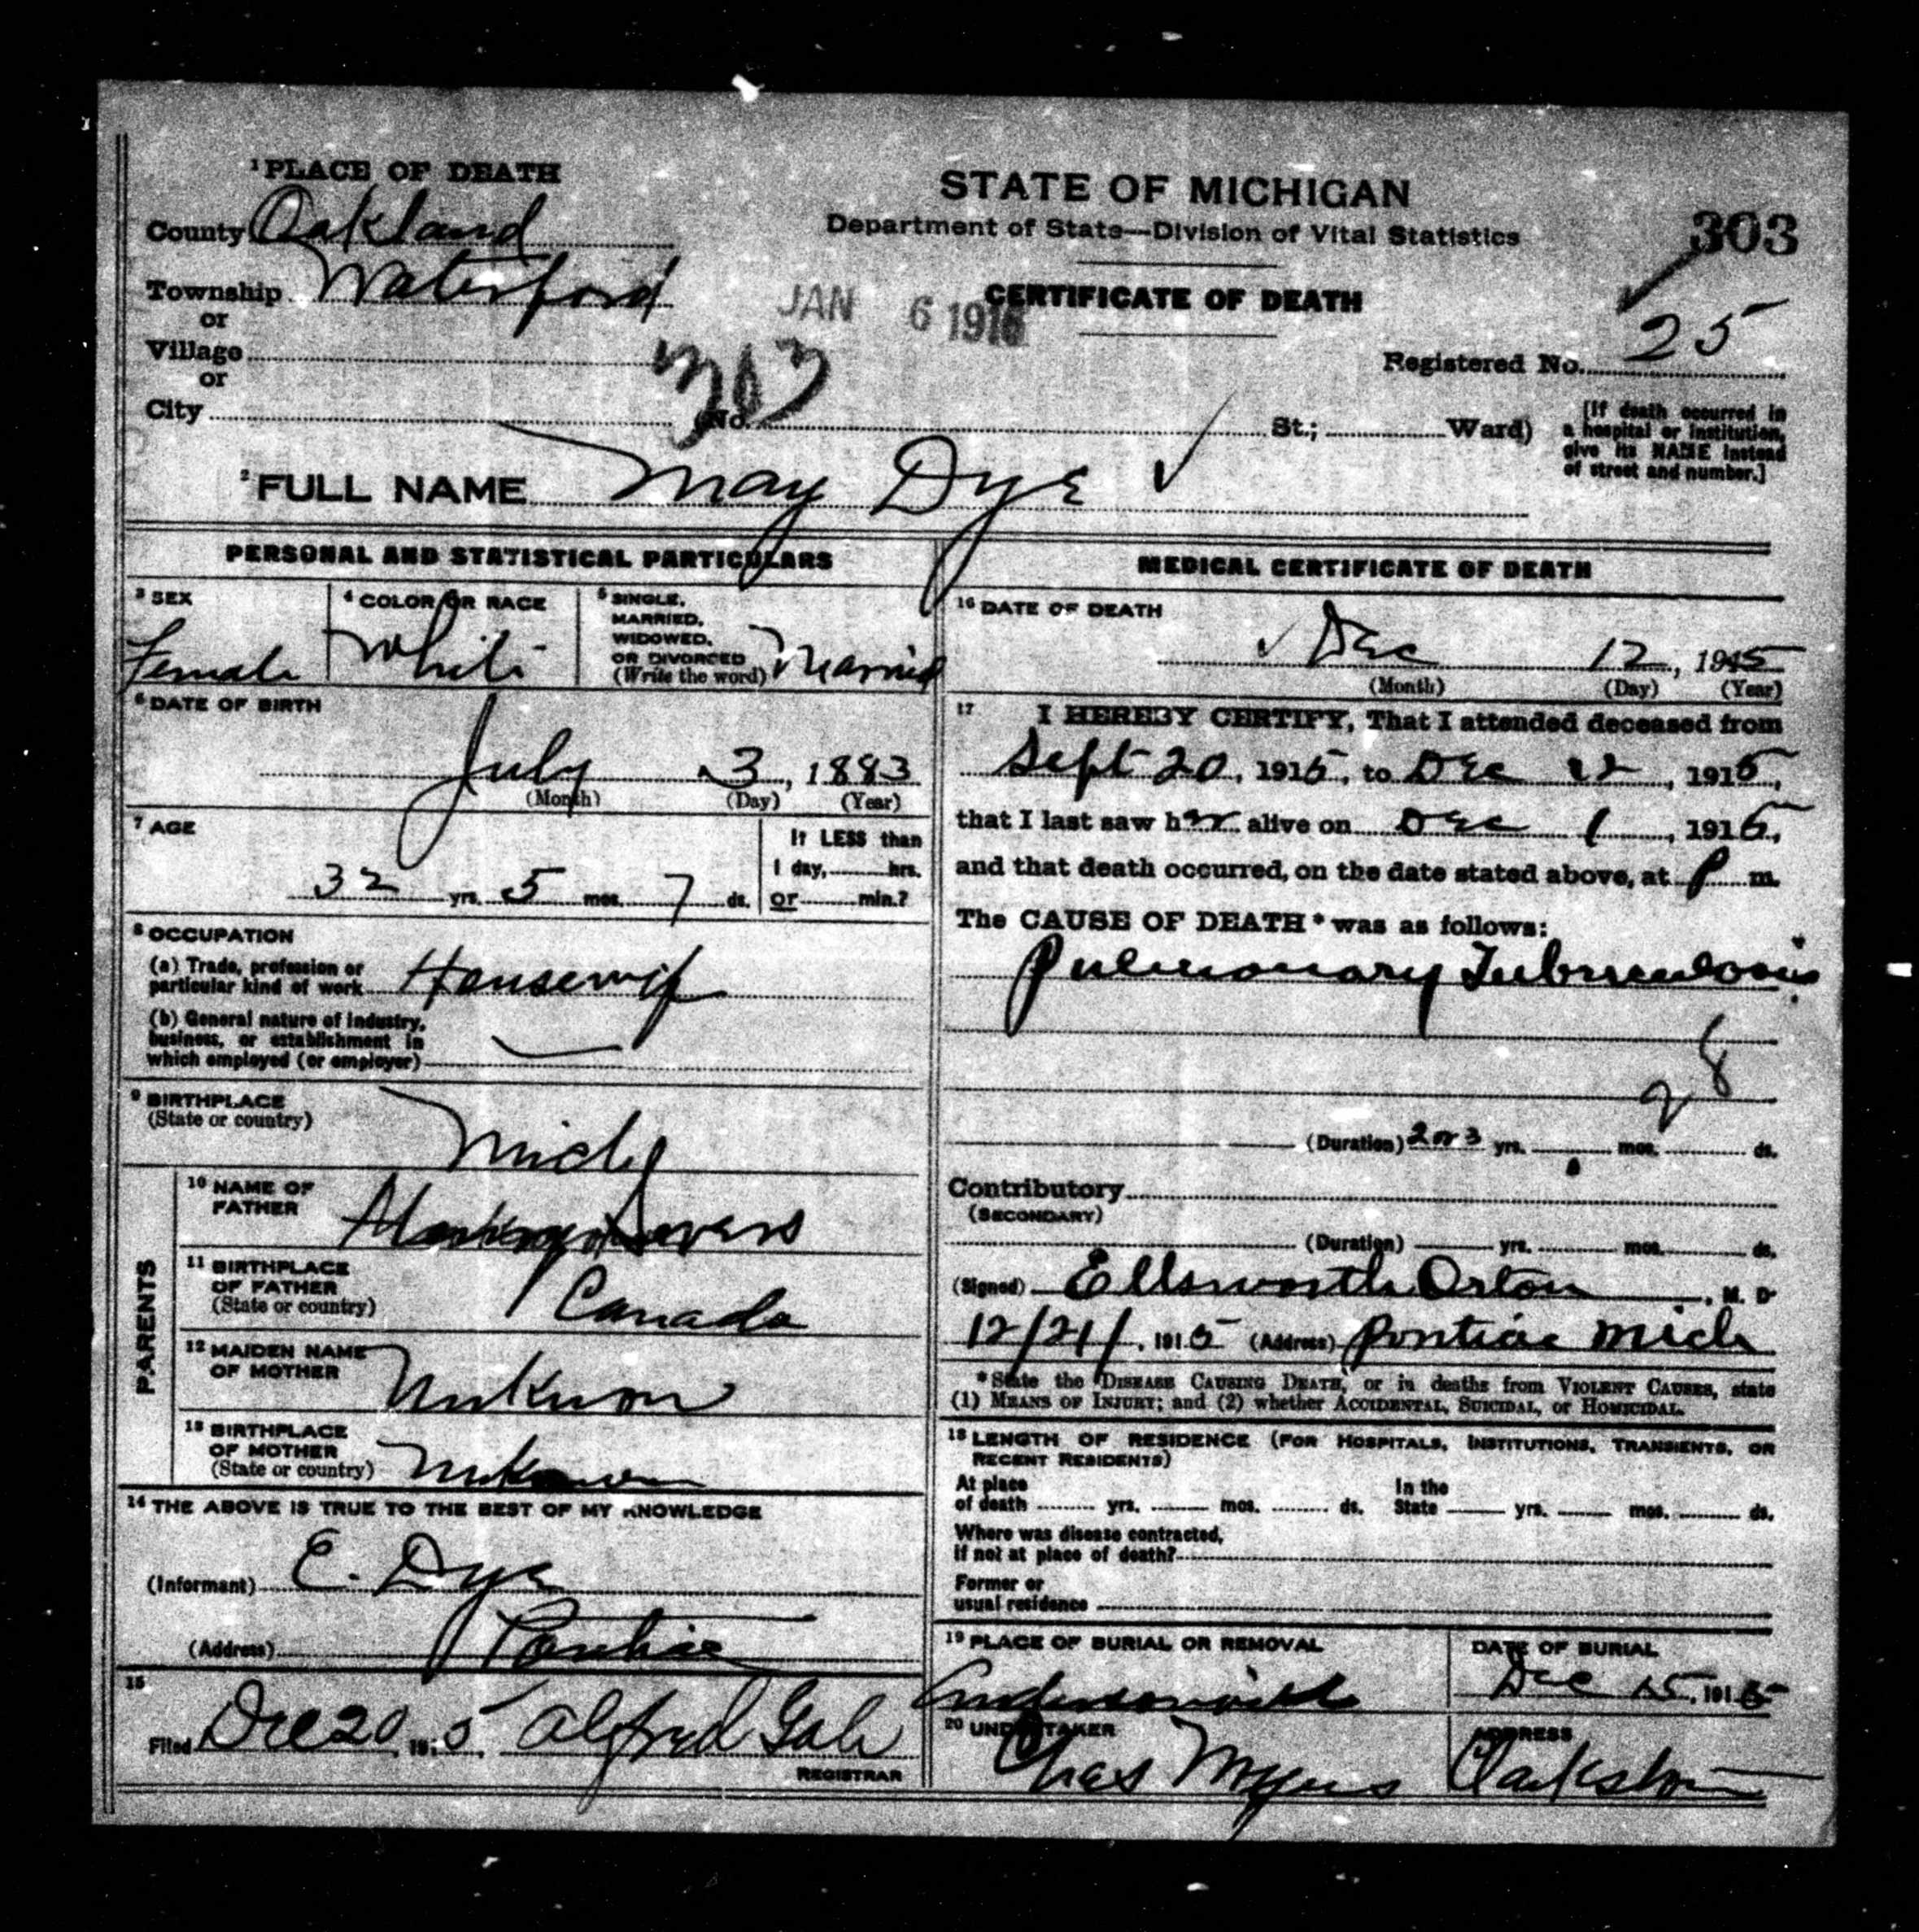 1 PLACE OF DEATH
STATE OF MICHIGAN
Department of State—Division of Vital Statistics
303
County Oakland
Township Waterford
JAN 6 1916
CERTIFICATE OF DEATH
or
Village
Registered No. 25
or
303
City (No. St.; Ward)
[If death occurred in
a hospital or institution,
give its NAME instead
of street and number.]
2 FULL NAME May Dye
PERSONAL AND STATISTICAL PARTICULARS
3 SEX
Female
4 COLOR OR RACE
White
5 SINGLE,
MARRIED,
WIDOWED,
OR DIVORCED
(Write the word) Married
6 DATE OF BIRTH
July 3, 1883
(Month) (Day) (Year)
7 AGE
32 yrs. 5 mos. 7 ds.
If LESS than
1 day, hrs.
or min.?
8 OCCUPATION
(a) Trade, profession or
particular kind of work Housewif
(b) General nature of industry,
business, or establishment in
which employed (or employer)
9 BIRTHPLACE
(State or country)
Mich
PARENTS
10 NAME OF
FATHER
11 BIRTHPLACE
OF FATHER
(State or country) Canada
12 MAIDEN NAME
OF MOTHER Unknown
13 BIRTHPLACE
OF MOTHER
(State or country) Unknown
14 THE ABOVE IS TRUE TO THE BEST OF MY KNOWLEDGE
(Informant) E. Dye
(Address) Pontiac
15
Filed Dec 20, 1915, Alfred Gale
REGISTRAR
MEDICAL CERTIFICATE OF DEATH
16 DATE OF DEATH
Dec 12, 1915
(Month) (Day) (Year)
17 I HEREBY CERTIFY, That I attended deceased from
Sept 20, 1915, to Dec 12, 1915,
that I last saw her alive on Dec 1, 1915,
and that death occurred, on the date stated above, at P m.
The CAUSE OF DEATH * was as follows:
Pulmonary Tuberculosis
28
(Duration) 2 or 3 yrs. mos. ds.
Contributory
(SECONDARY)
(Duration) yrs. mos. ds.
(Signed) Ellsworth Orton, M. D.
12/21/, 1915 (Address) Pontiac Mich
* State the DISEASE CAUSING DEATH, or in deaths from VIOLENT CAUSES, state
(1) MEANS OF INJURY; and (2) whether ACCIDENTAL, SUICIDAL, or HOMICIDAL.
18 LENGTH OF RESIDENCE (FOR HOSPITALS, INSTITUTIONS, TRANSIENTS, OR
RECENT RESIDENTS)
At place
of death yrs. mos. ds.
In the
State yrs. mos. ds.
Where was disease contracted,
If not at place of death?
Former or
usual residence
19 PLACE OF BURIAL OR REMOVAL
Andersonville
DATE OF BURIAL
Dec 15, 1915
20 UNDERTAKER
Chas Myers
ADDRESS
Clarkston